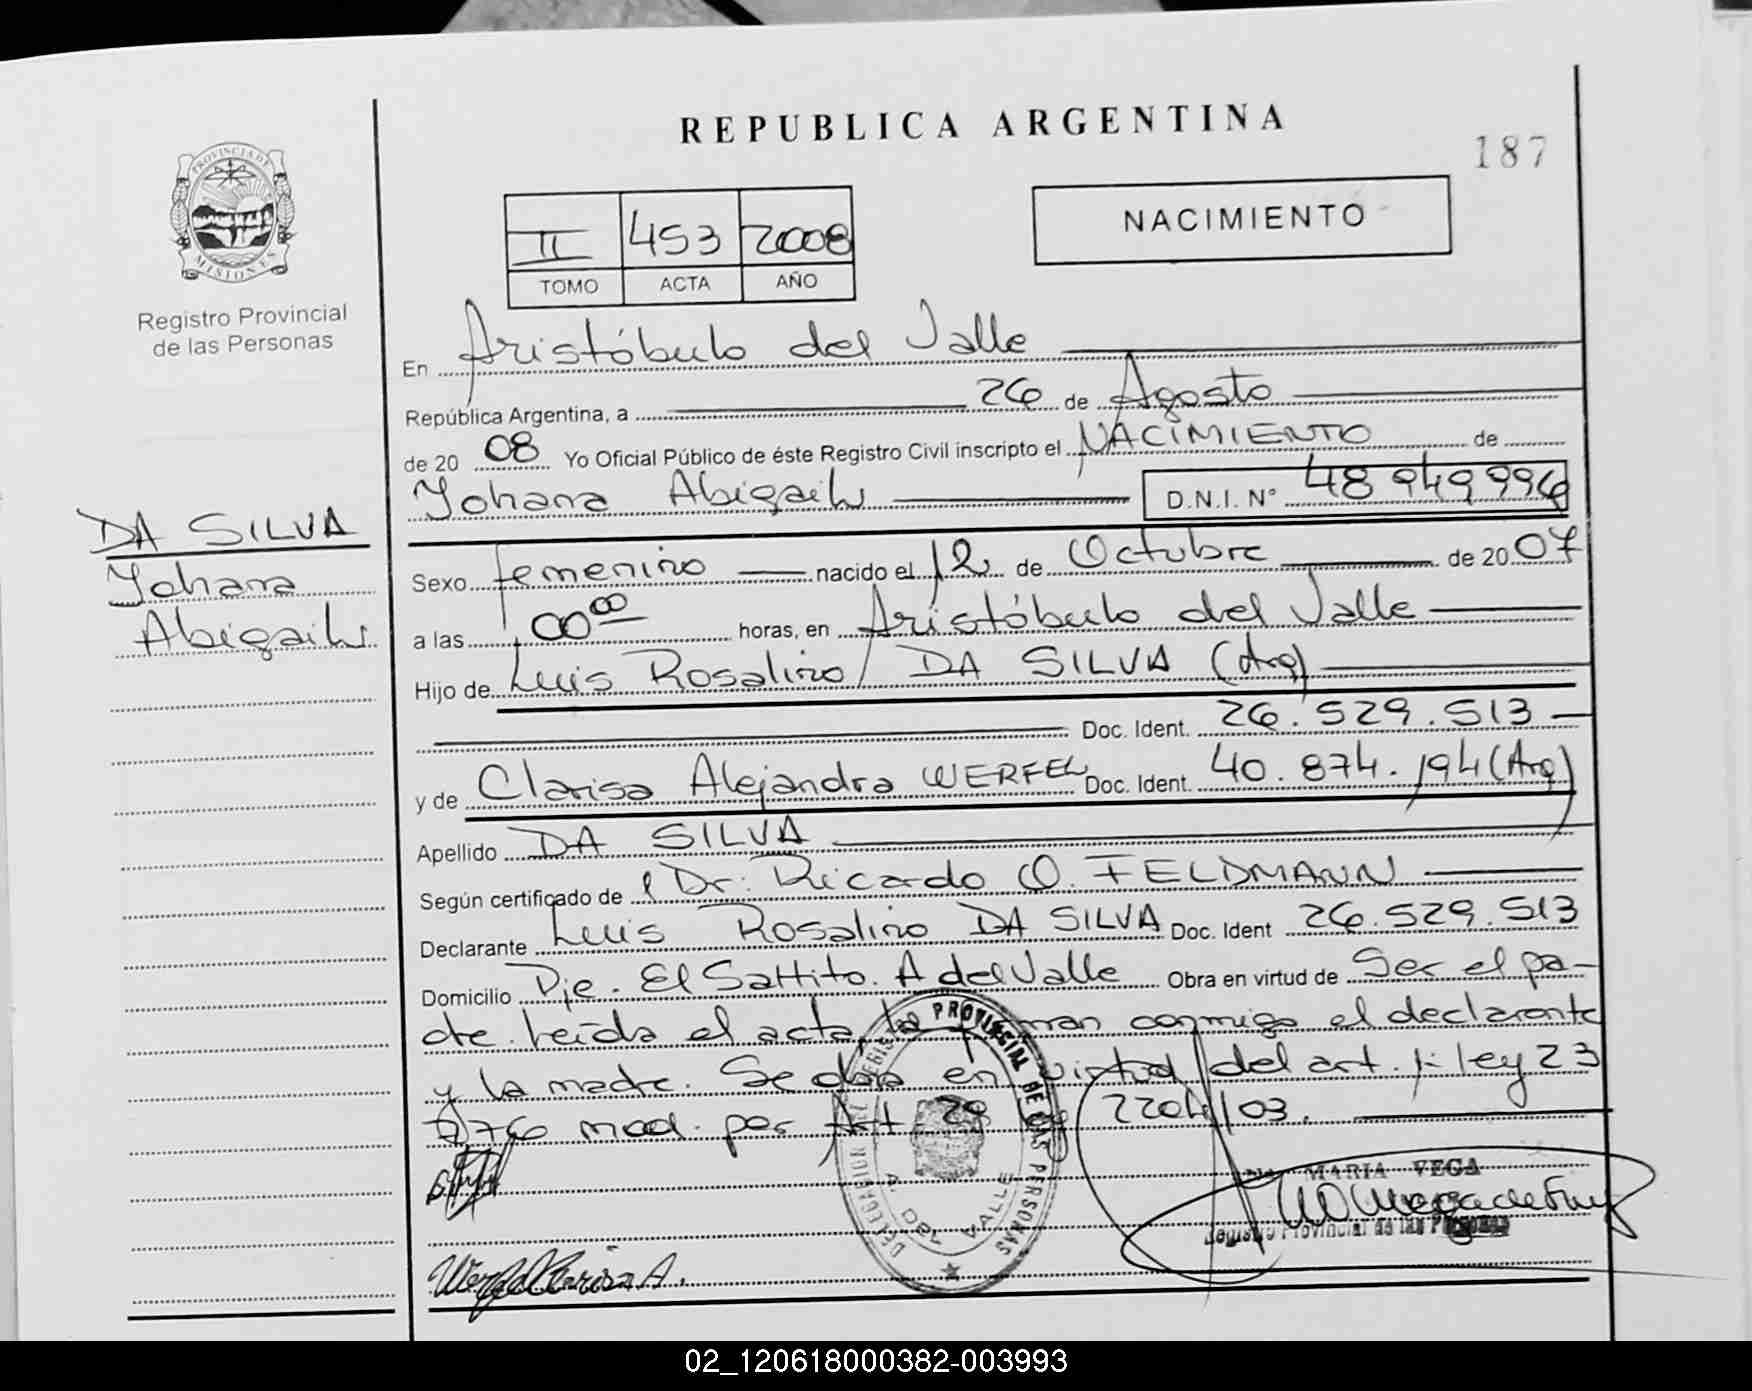 REPUBLICA ARGENTINA
187
PROVINCIA DE
MISIONES
Registro Provincial
de las Personas
II 453 2008
TOMO ACTA AÑO
NACIMIENTO
En Aristóbulo del Valle
República Argentina, a 26 de Agosto
de 20 08 Yo Oficial Público de éste Registro Civil inscripto el NACIMIENTO de
Yohana Abigail D.N.I. N° 48949996
DA SILVA
Yohana
Abigail
Sexo femenino nacido el 12 de Octubre de 2007
a las 00 00 horas, en Aristóbulo del Valle
Hijo de Luis Rosalino DA SILVA (Arg)
Doc. Ident. 26.529.513
y de Clarisa Alejandra WERFEL Doc. Ident. 40.874.194 (Arg)
Apellido DA SILVA
Según certificado de Dr. Ricardo O. FELDMANN
Declarante Luis Rosalino DA SILVA Doc. Ident 26.529.513
Domicilio Pje. El Saltito. A del Valle Obra en virtud de Ser el pa-
dre. Leída el acta, la firman conmigo el declarante
y la madre. Se obra en virtud del art. 1: ley 23
776 mod. por Art 29 2204/03.
DELEGACION DEL REGISTRO PROVINCIAL DE LAS PERSONAS
A. DEL VALLE
MARIA VEGA
Registro Provincial de las Personas
Werfel Clarisa A.
02_120618000382-003993